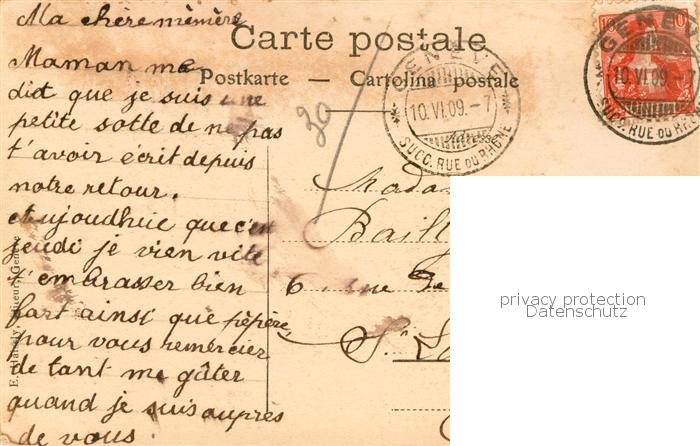 Ma chère mémère
Carte postale
Postkarte — Cartolina postale
Maman me
dit que je suis une
petite sotte de ne pas
t'avoir écrit depuis
notre retour.
aujoudhuie que c'est
jeudi je vien vite
t'embrasser bien
fort ainsi que pépère,
pour vous remercier
de tant me gâter
quand je suis auprès
de vous.
30
GENÈVE
10.VI.09.-7
SUCC. RUE DU RHÔNE
10 10
GENÈVE
10.VI.09.-7
SUCC. RUE DU RHÔNE
Adresse
Mada
Baill
6. rue De
St
privacy protection
Datenschutz
Genève